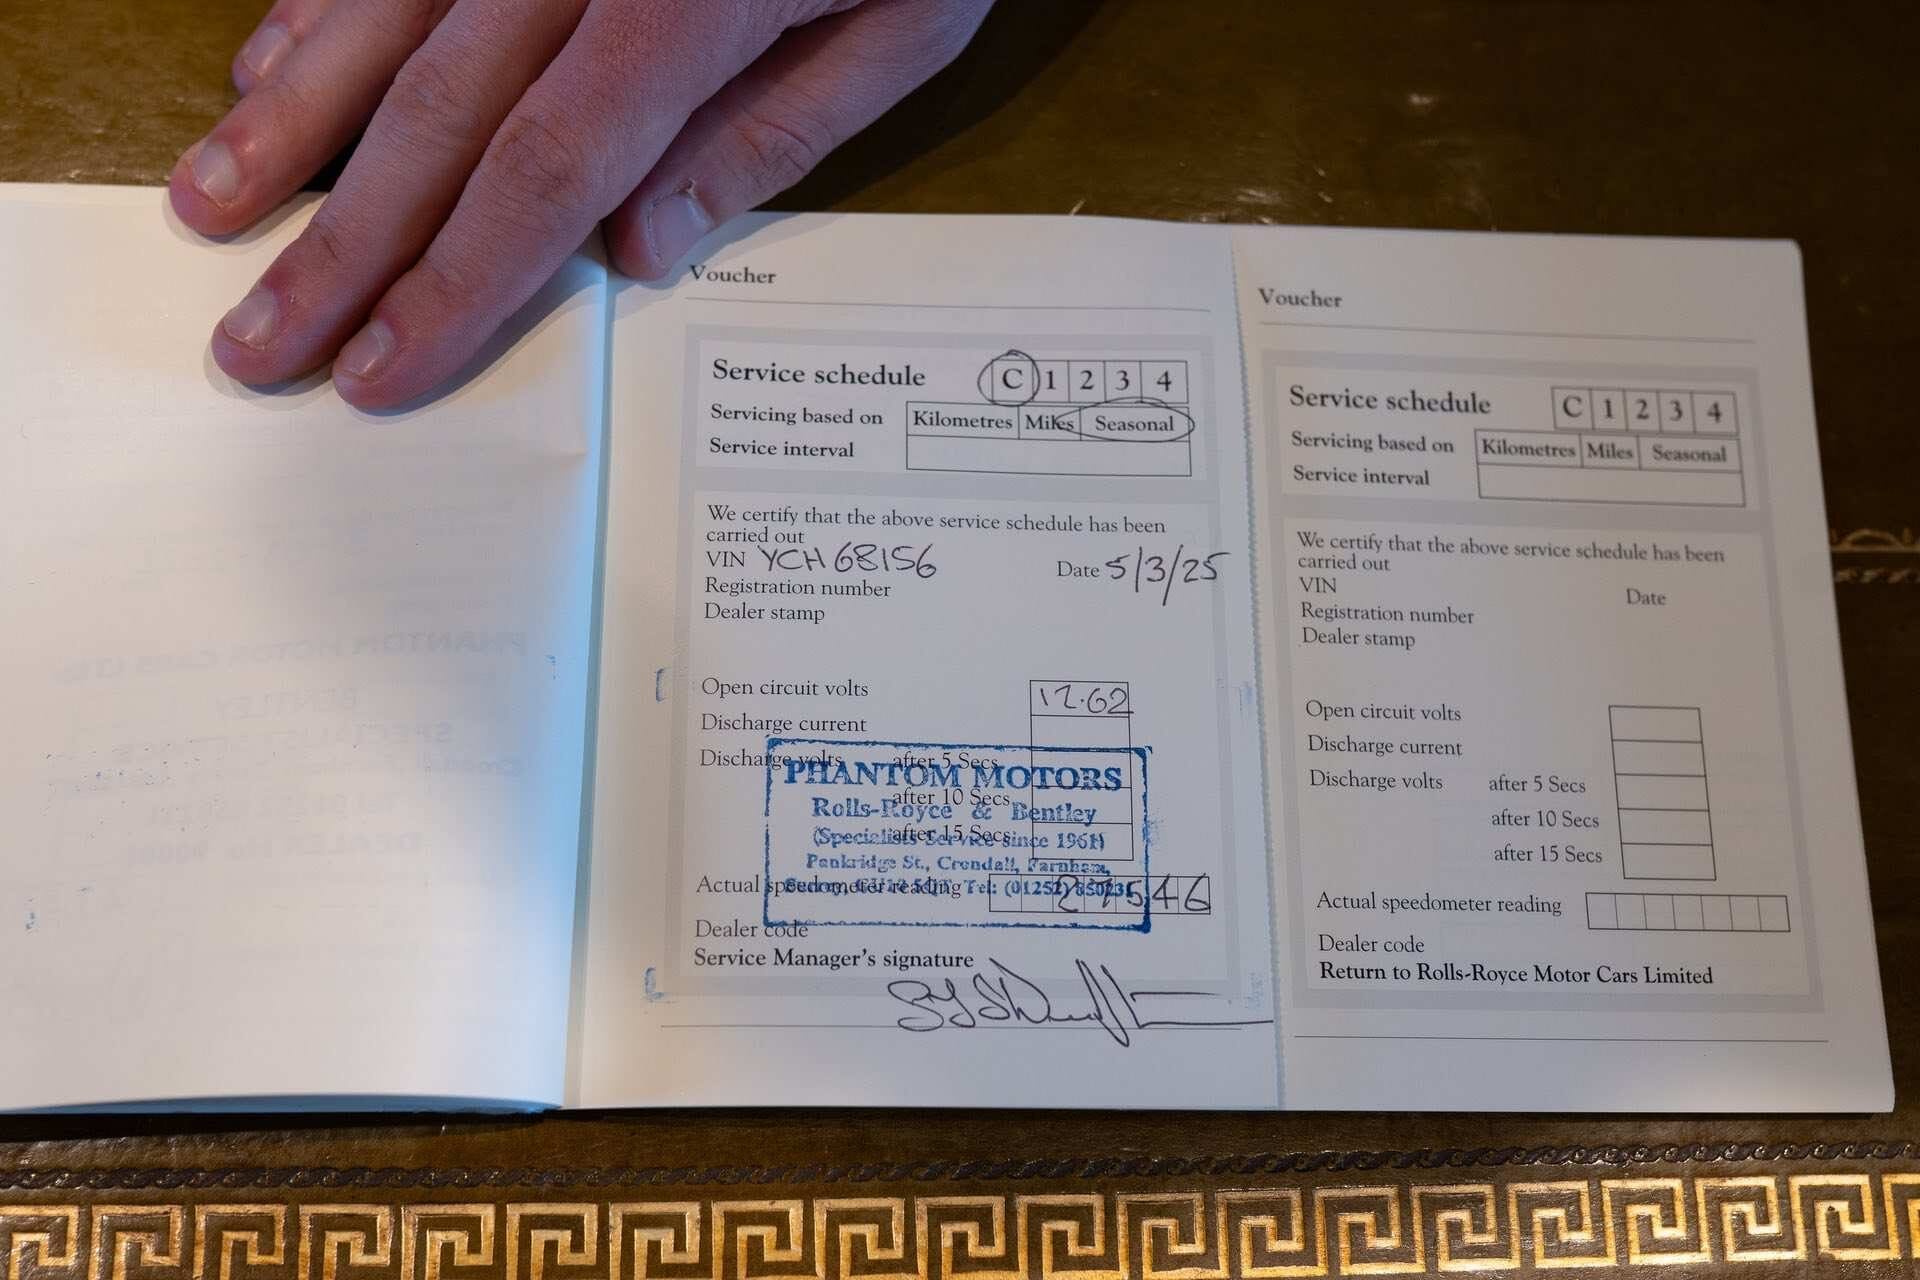 Voucher
Service schedule C 1 2 3 4
Servicing based on Kilometres Miles Seasonal
Service interval
We certify that the above service schedule has been
carried out
VIN YCH 68156 Date 5/3/25
Registration number
Dealer stamp
Open circuit volts 12.62
Discharge current
Discharge volts after 5 Secs
after 10 Secs
after 15 Secs
PHANTOM MOTORS
Rolls-Royce & Bentley
(Specialists Service since 1961)
Pankridge St., Crondall, Farnham,
Tel: (01252)
Actual speedometer reading 27546
Dealer code
Service Manager's signature
Voucher
Service schedule C 1 2 3 4
Servicing based on Kilometres Miles Seasonal
Service interval
We certify that the above service schedule has been
carried out
VIN Date
Registration number
Dealer stamp
Open circuit volts
Discharge current
Discharge volts after 5 Secs
after 10 Secs
after 15 Secs
Actual speedometer reading
Dealer code
Return to Rolls-Royce Motor Cars Limited